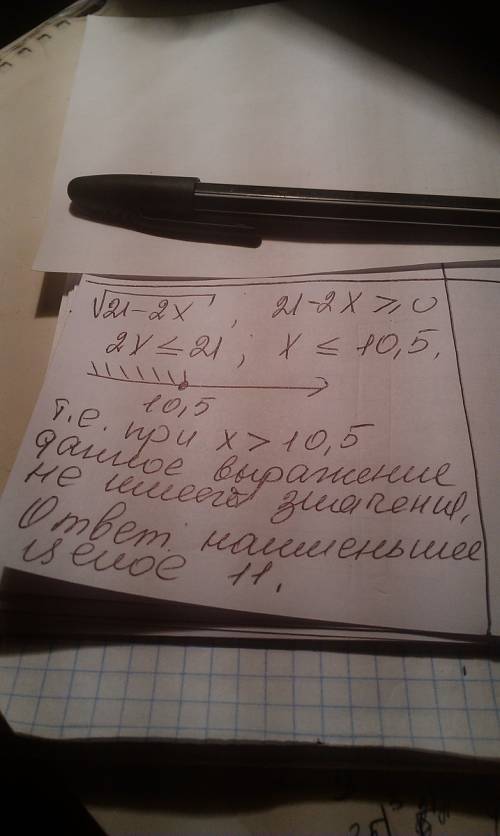 √21-2x , 21-2x ≥ 0
2x ≤ 21 ; x ≤ 10,5.
10,5
т.е. при x > 10,5
данное выражение
не имеет значения.
Ответ: наименьшее
целое 11.